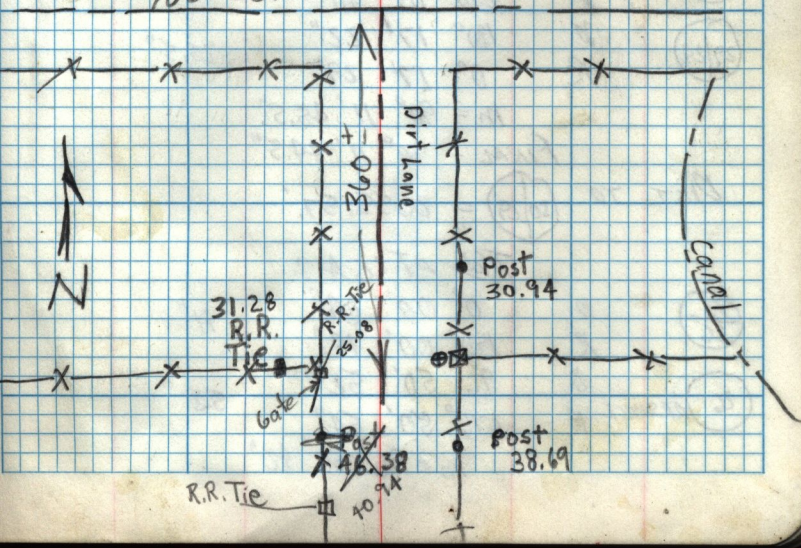 360 ±
Dirt Lane
N
Canal
Post
30.94
31.28
R.R.
Tie
R.R. Tie
25.08
Gate
Post
46.38
40.94
R.R. Tie
Post
38.69